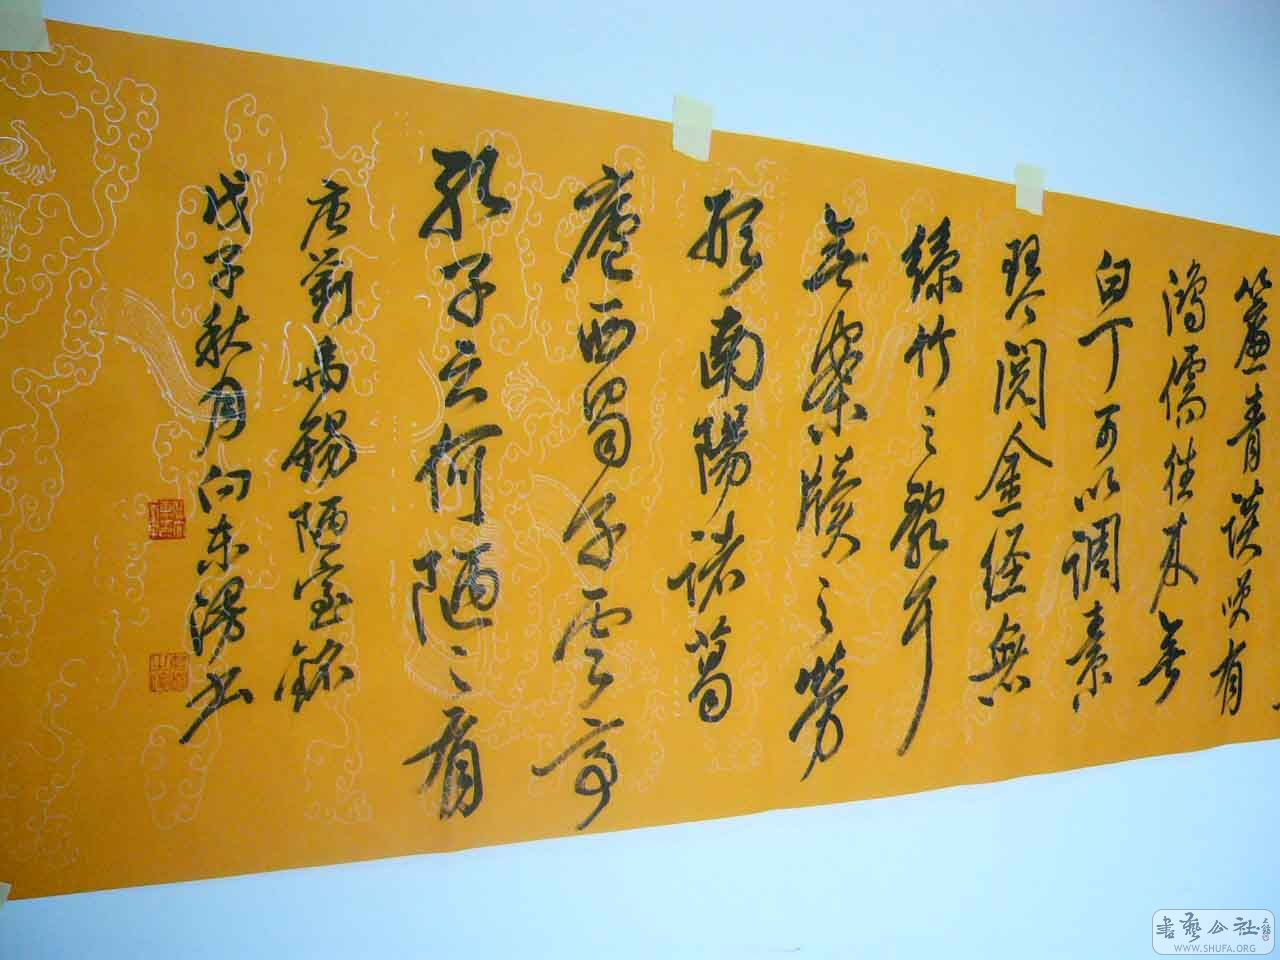 簾青談笑有
鴻儒往来無
白丁可以調素
琴閱金經無
絲竹之亂耳
無案牘之勞
形南陽諸葛
廬西蜀子雲亭
孔子云何陋之有
唐劉禹錫陋室銘
戊子秋月向東书
書藝公社
WWW.SHUFA.ORG